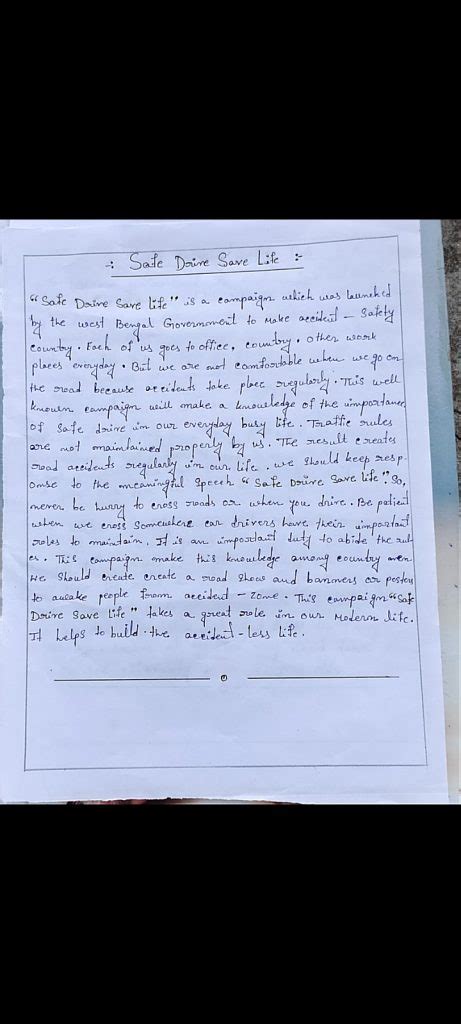 -: Safe Drive Save Life :-
"Safe Drive Save life" is a campaign which was launched
by the west Bengal Government to make accident - Safety
country. Each of us goes to office, country, other work
places everyday. But we are not comfortable when we go on
the road because accidents take place regularly. This well
known campaign will make a knowledge of the importance
of safe drive in our everyday busy life. Traffic rules
are not maintained properly by us. The result creates
road accidents regularly in our life. we should keep resp-
onse to the meaningful speech "Safe Drive Save life". So,
never be hurry to cross roads or when you drive. Be patient
when we cross somewhere car drivers have their important
roles to maintain. It is an important duty to abide the rul
es. This campaign make this knowledge among country men
We should create create a road show and banners or poster
to awake people from accident - zone. This campaign "Safe
Drive Save life" takes a great role in our modern life.
It helps to build the accident - less life.